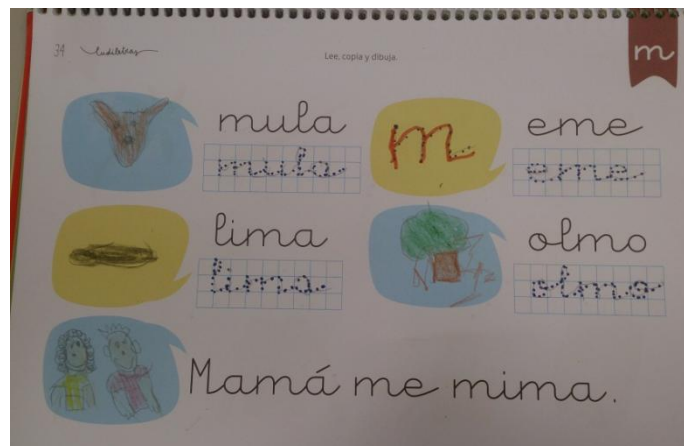 34 Ludiletras
Lee, copia y dibuja.
m
mula
mula
m
eme
eme
lima
lima
olmo
olmo
Mamá me mima.